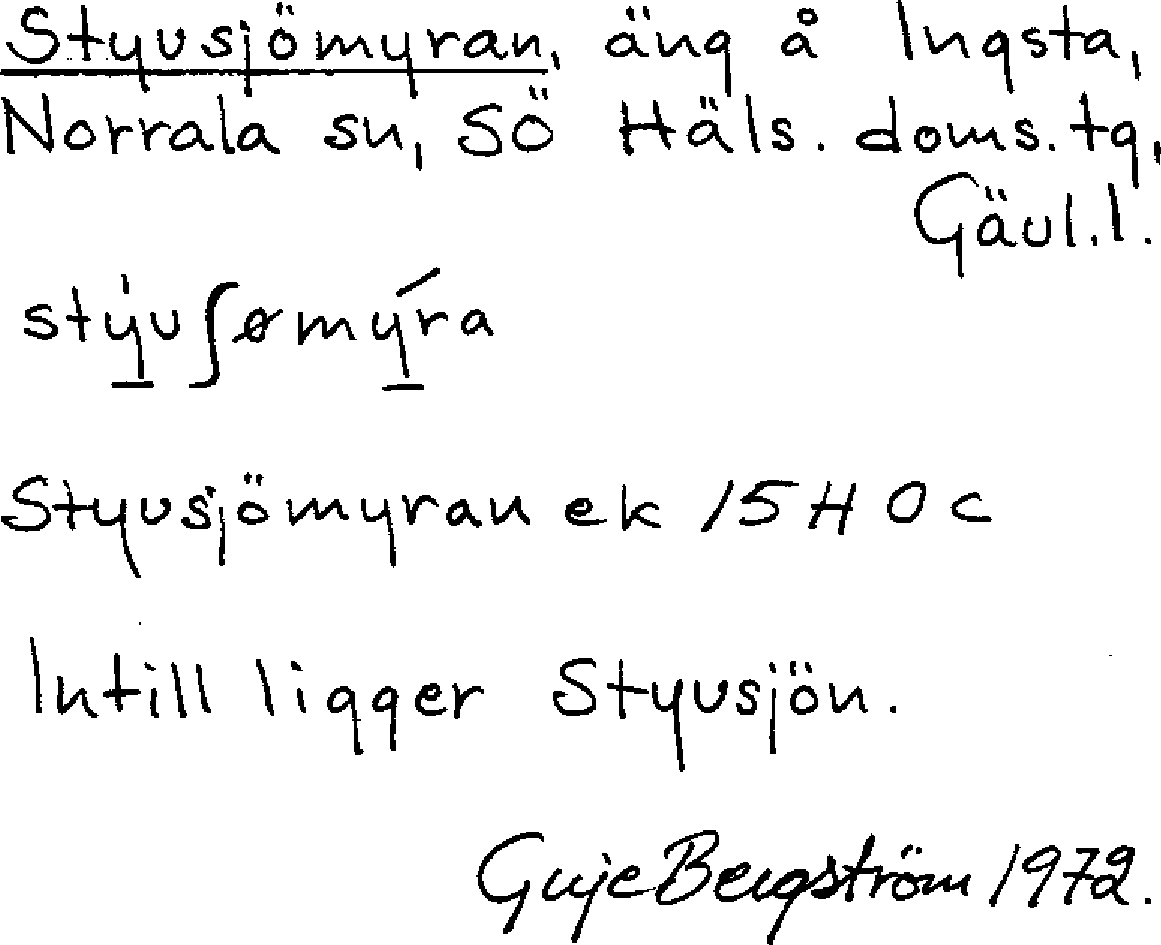 Styvsjömyran, äng å Ingsta,
Norrala sn, SÖ Häls. doms.tg,
Gävl.l.
stývʃømýra
Styvsjömyran ek 15H 0c
Intill ligger Styvsjön.
Guje Bergström 1972.